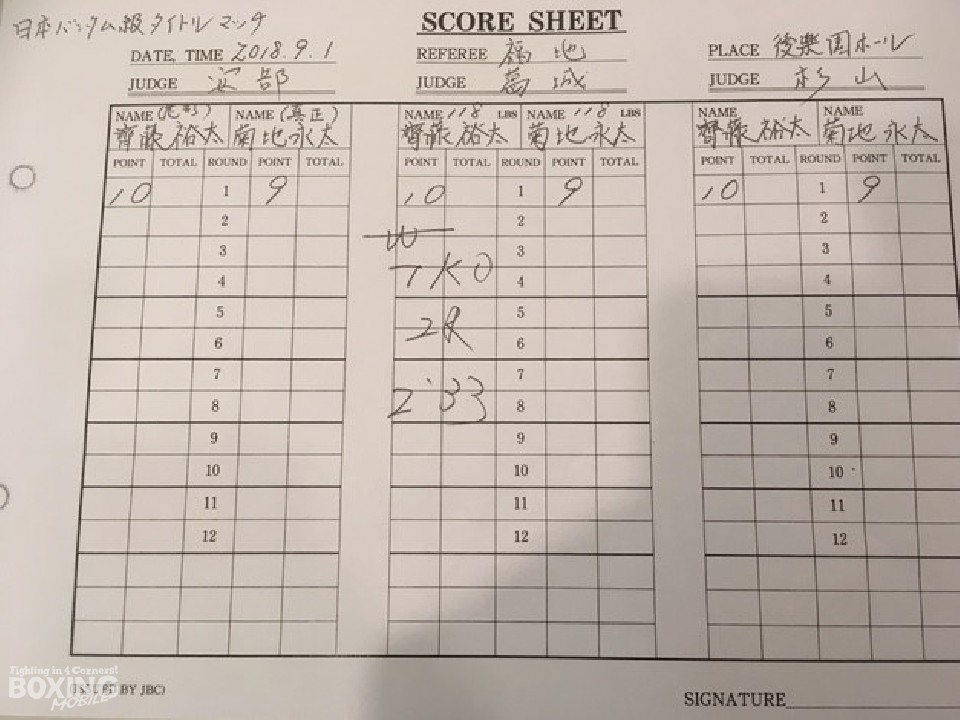 日本バンタム級タイトルマッチ
SCORE SHEET
DATE, TIME 2018.9.1 REFEREE 福地 PLACE 後楽園ホール
JUDGE 安部 JUDGE 葛城 JUDGE 杉山
NAME (花形) NAME (真正) NAME 118 LBS NAME 118 LBS NAME NAME
齊藤裕太 菊地永太 齊藤裕太 菊地永太 齊藤裕太 菊地永太
POINT TOTAL ROUND POINT TOTAL POINT TOTAL ROUND POINT TOTAL POINT TOTAL ROUND POINT TOTAL
10 1 9 10 1 9 10 1 9
2 2 2
3 W 3 3
4 TKO 4 4
5 2R 5 5
6 6 6
7 7 7
8 2'33 8 8
9 9 9
10 10 10
11 11 11
12 12 12
Fighting in 4 Corners!
BOXING
MOBILE
BY JBC)
SIGNATURE